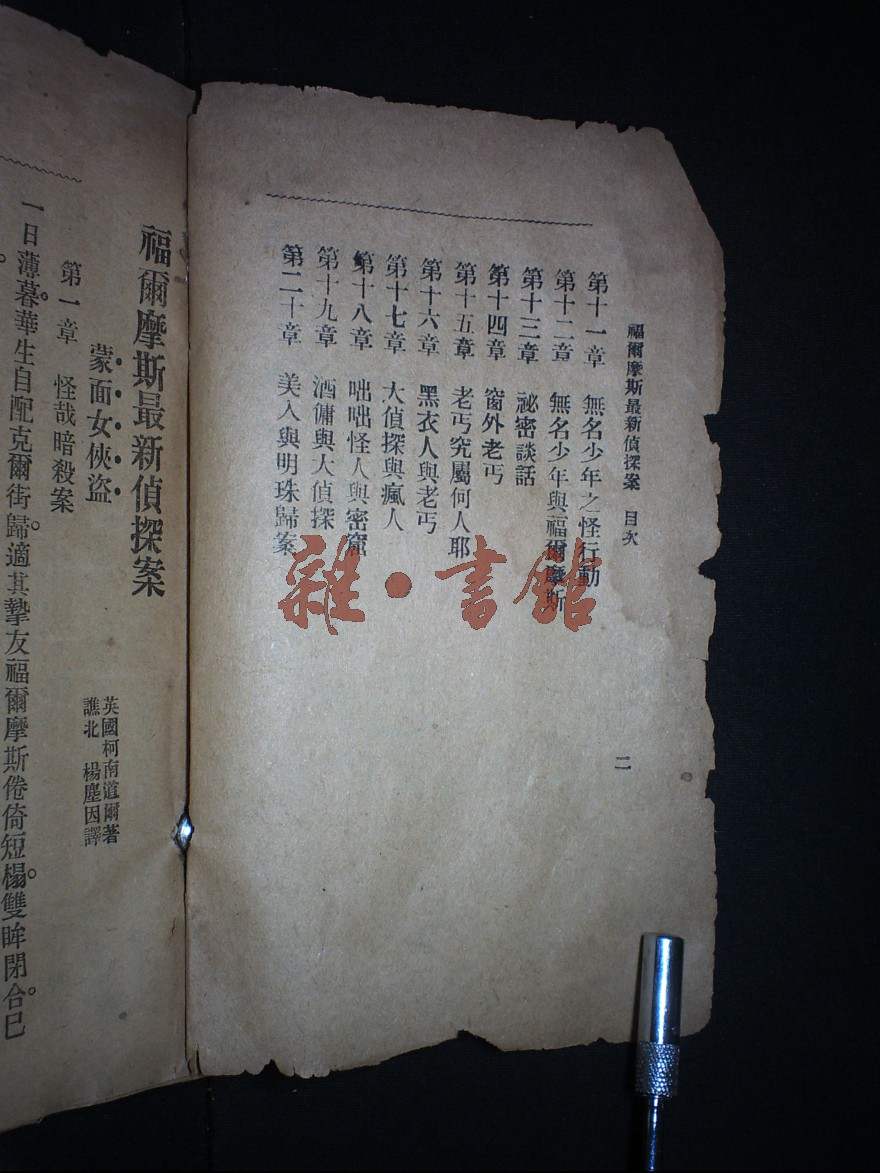 福爾摩斯最新偵探案 目次
第十一章 無名少年之怪行動
第十二章 無名少年與福爾摩斯
第十三章 祕密談話
第十四章 窗外老丐
第十五章 老丐究屬何人耶
第十六章 黑衣人與老丐
第十七章 大偵探與瘋人
第十八章 咄咄怪人與密窟
第十九章 酒傭與大偵探
第二十章 美人與明珠歸案
二
雜·書館
福爾摩斯最新偵探案
蒙面女俠盜
英國柯南道爾著
譙北 楊塵因譯
第一章 怪哉暗殺案
一日薄暮。華生自配克爾街歸。適其摯友福爾摩斯倦倚短榻。雙眸閉合。已